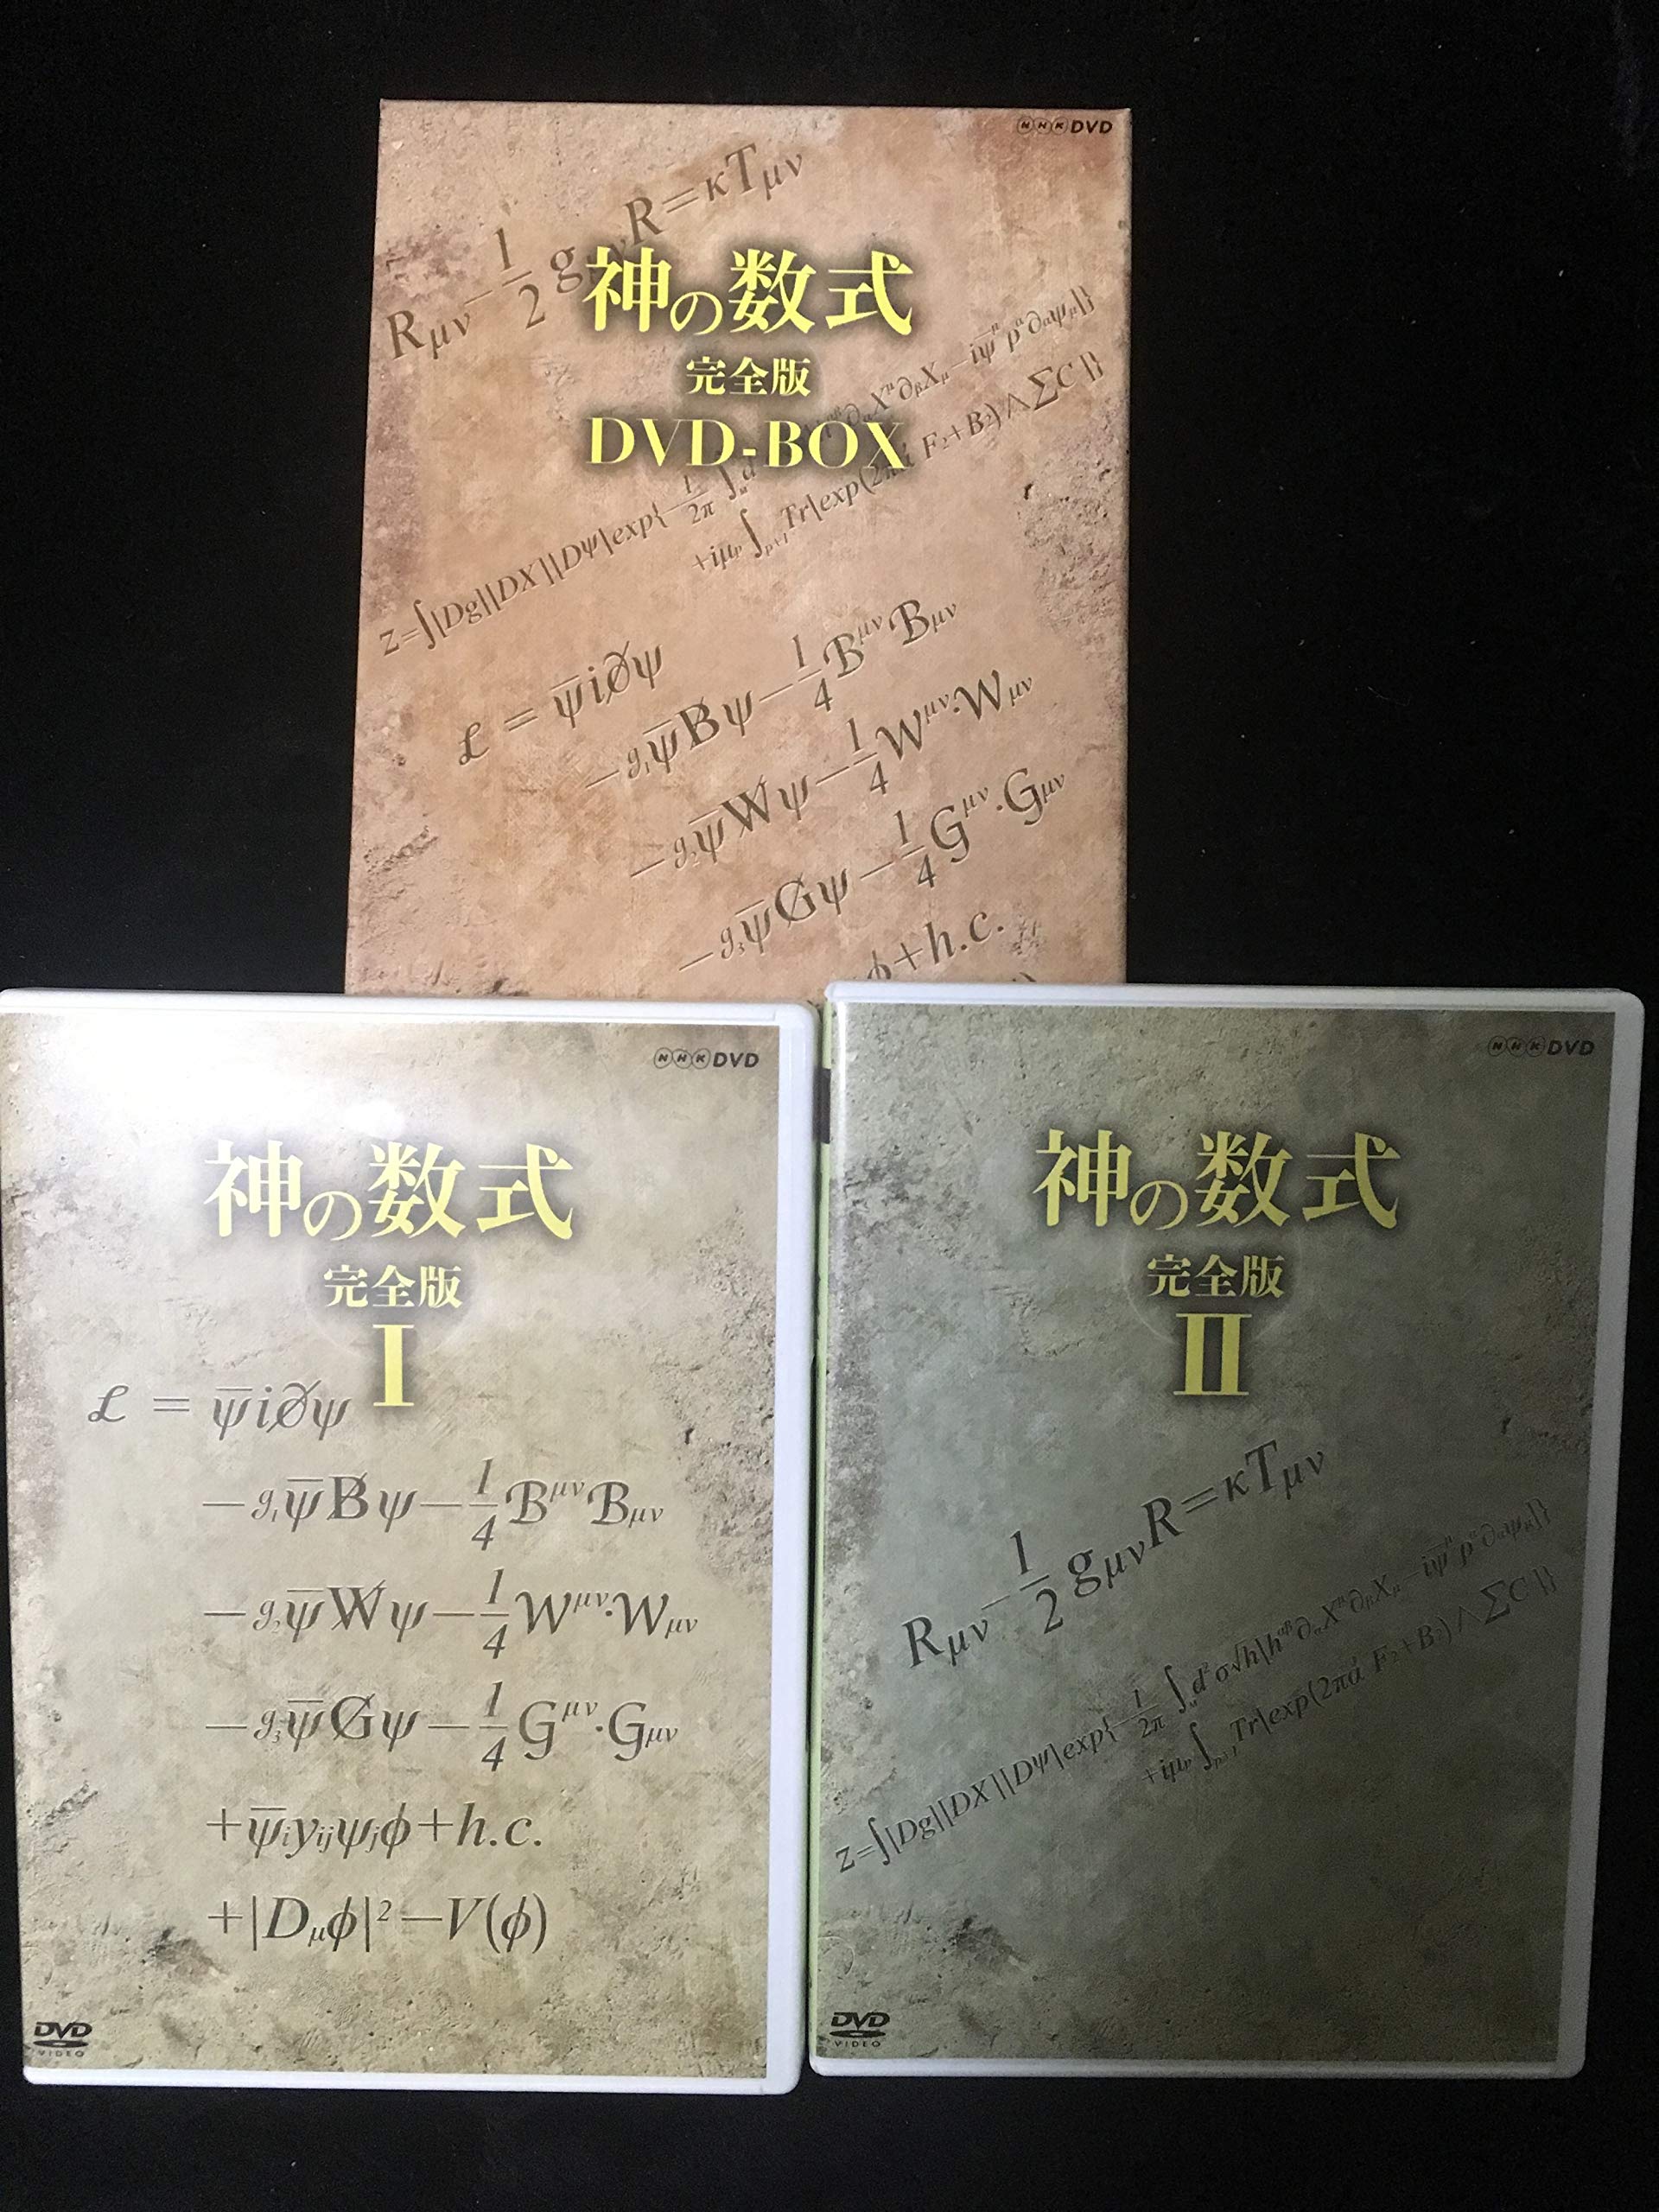 NHK DVD
R̃μν−1/2 g νR=κTμν
神の数式
完全版
DVD-BOX
Z=∫[Dg][DX][Dψ]exp{−1/2π ∫
+iμₚ∫ₚ₊₁Tr[exp(2πα′ F₂+B₂)∧ΣC]}
ℒ = ψ̄i∂̸ψ
−g₁ψ̄B̸ψ−1/4BμνBμν
−g₂ψ̄W̸ψ−1/4Wμν·Wμν
−g₃ψ̄G̸ψ−1/4Gμν·Gμν
ϕ+h.c.
NHK DVD
神の数式
完全版
I
ℒ = ψ̄i∂̸ψ
−g₁ψ̄B̸ψ−1/4BμνBμν
−g₂ψ̄W̸ψ−1/4Wμν·Wμν
−g₃ψ̄G̸ψ−1/4Gμν·Gμν
+ψ̄ᵢyᵢⱼψⱼϕ+h.c.
+|Dμϕ|²−V(ϕ)
DVD
VIDEO
NHK DVD
神の数式
完全版
II
Rμν−1/2 gμνR=κTμν
Z=∫[Dg][DX][Dψ]exp{−1/2π ∫d²σ√h[h∂X∂X−iψ̄ρ∂ψ]}
+iμₚ∫ₚ₊₁Tr[exp(2πα′ F₂+B₂)∧ΣC]}
DVD
VIDEO